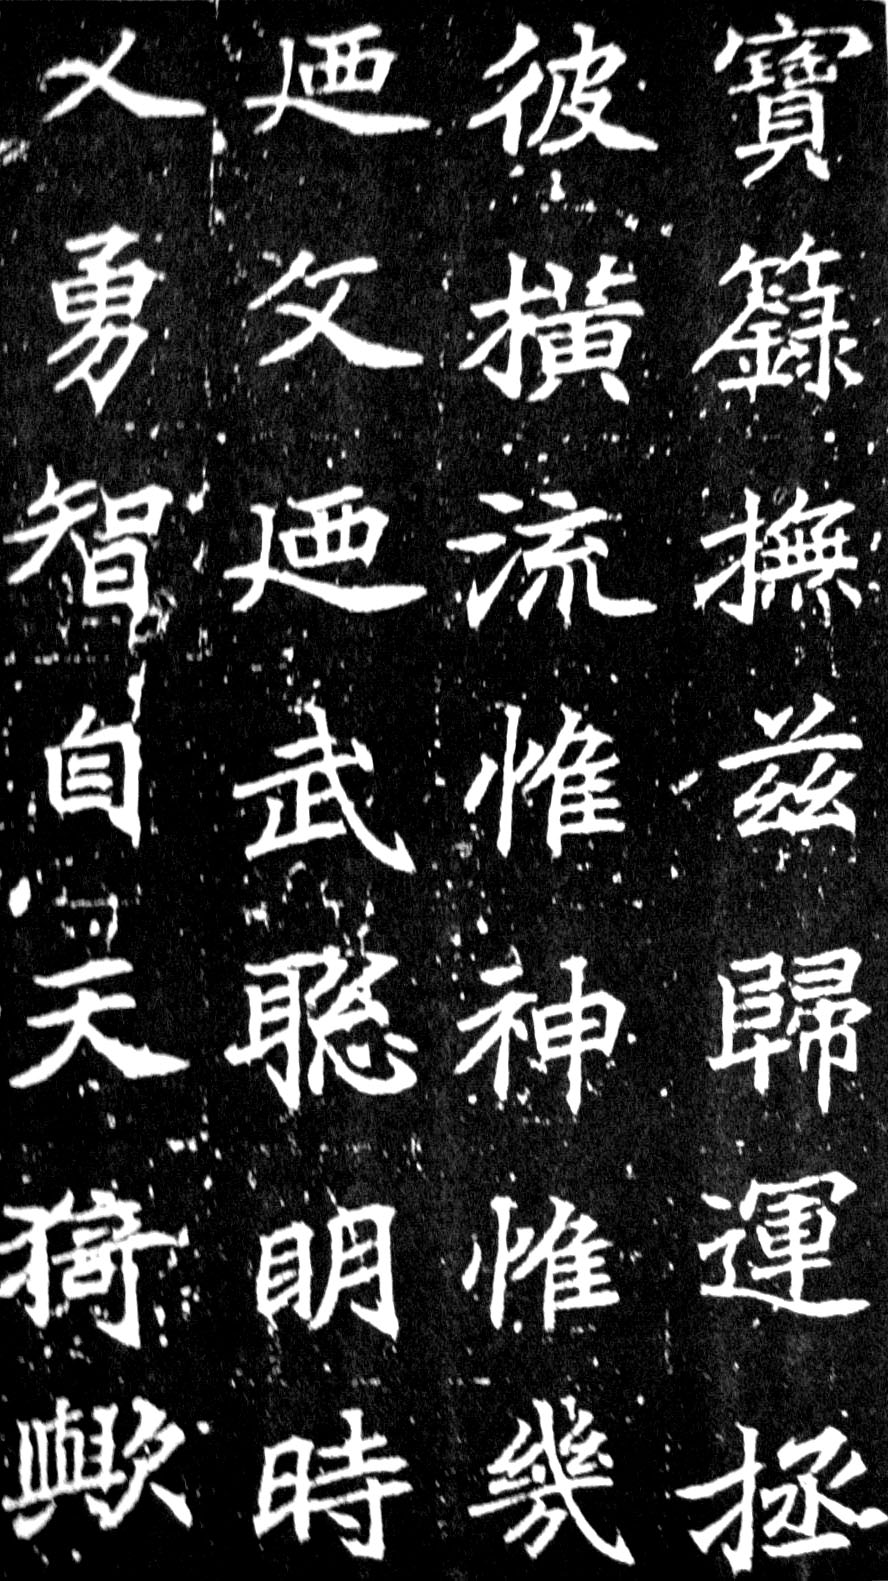 寶籙撫茲歸運拯
彼橫流惟神惟幾
迺文迺武聰明時
乂勇智自天猗歟